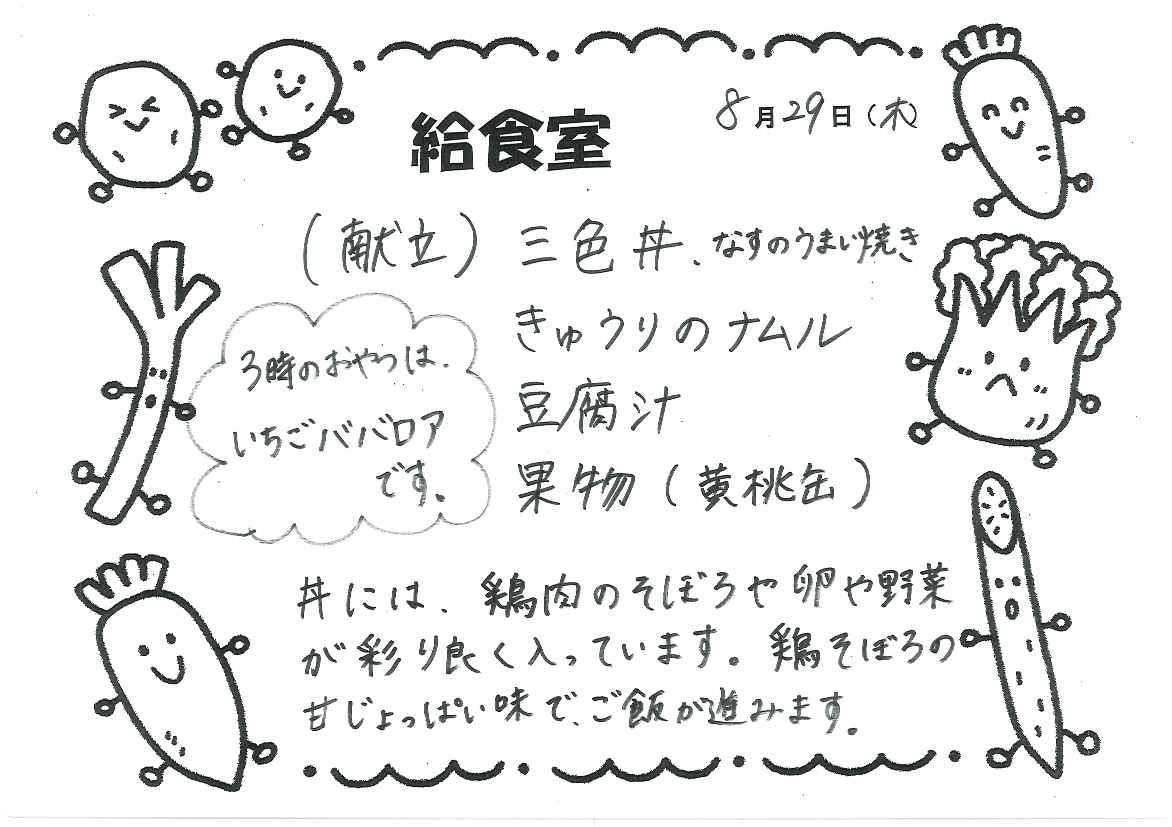 給食室
8月29日(木)
(献立) 三色丼、なすのうまい焼き
きゅうりのナムル
豆腐汁
果物(黄桃缶)
3時のおやつは、
いちごババロア
です。
丼には、鶏肉のそぼろや卵や野菜
が彩り良く入っています。鶏そぼろの
甘じょっぱい味で、ご飯が進みます。